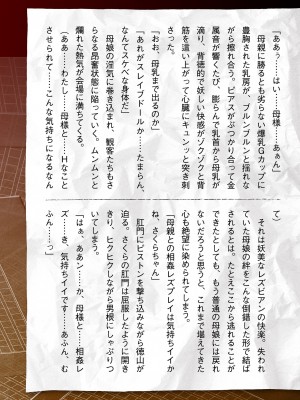 「ああぅ……はい……母様……あぁん」
　母親に勝るとも劣らない爆乳Ｇカップに
豊胸された乳房が、ブルンブルンと揺れな
がら擦れ合う。ピアスがぶつかり合って金
属音が響くたび、膨らんで乳首から母乳が
滴り、背徳的で妖しい快感がゾクゾクと背
筋を這い上がって心臓にキュンッと突き刺
さった。
「おお、母乳まで出るのか」
「あれがスレイブドールか……たまらん、
なんてスケベな身体だ」
　母娘の淫気に巻き込まれ、観客たちもさ
らなる昂奮状態に陥っていく。ムンムンと
爛れた熱気が会場に満ちてくる。
（ああ……わたし……母様と……Ｈなこと
させられて……こんな気持ちになるなん
て）
　それは妖美なレズビアンの快楽。失われ
ていた母娘の絆をこんな倒錯した形で結ば
されるとは。たとえここから逃れることが
できたとしても、もう普通の母娘には戻れ
ないだろうと思うと、これまで堪えてきた
心も絶望に染められてしまう。
「母親との相姦レズプレイは気持ちイイか
ね、さくらちゃん」
　肛門にピストンを撃ち込みながら徳山が
迫る。さくらの肛門は屈服したように開き
きり、ヒクヒクしながら男根にしゃぶりつ
いてしまう。
「はぁ、ああン……か、母様と……相姦レ
ズ……き、気持ちイイです……あふん、む
ふん……っ」